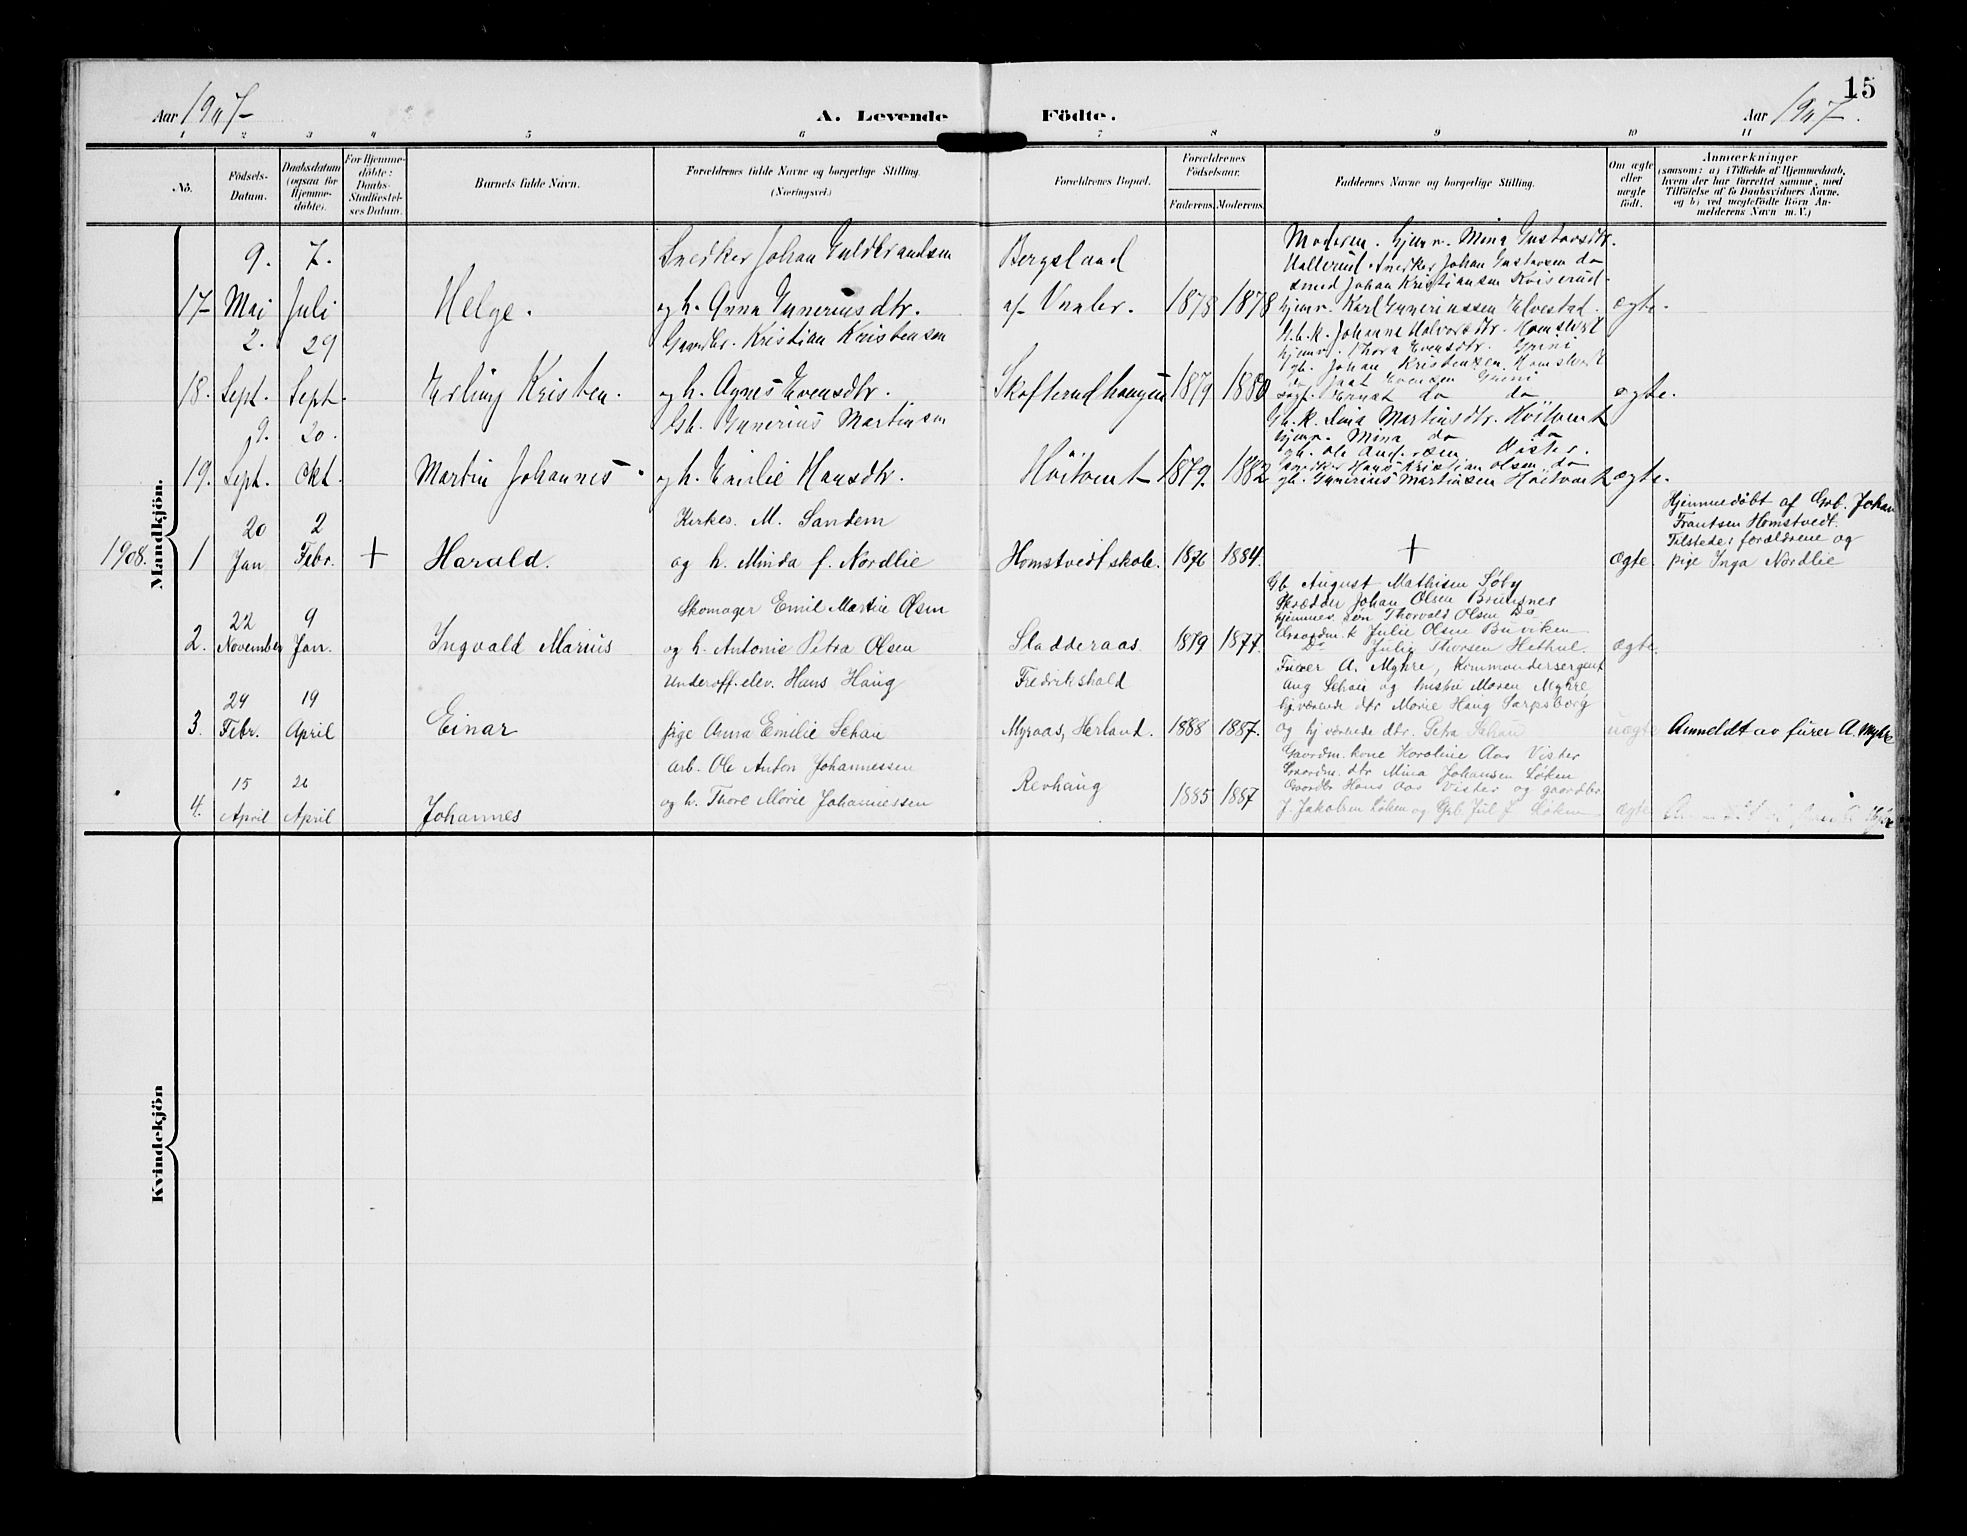 15
Aar 1907
A. Levende Födte.
Aar 1907.
1 2 3 4 5 6 7 8 9 10 11
No.
Födsels-
Datum.
Daabsdatum
(ogsaa for
Hjemme-
döbte).
For Hjemme-
döbte:
Daabs-
Stadfæstel-
ses Datum.
Barnets fulde Navn.
Forældrenes fulde Navne og borgerlige Stilling.
(Næringsvei.)
Forældrenes Bopæl.
Forældrenes
Födselsaar.
Faderens. Moderens.
Faddernes Navne og borgerlige Stilling.
Om ægte
eller
uægte
födt.
Anmærkninger
(saasom: a) i Tilfælde af Hjemmedaab,
hvem der har forrettet samme, med
Tilföielse af to Daabsvidners Navne,
og b) ved uægtefödte Börn An-
melderens Navn m. V.)
Mandkjön.
17 9. Mai 7. Juli Helge.
Snedker Johan Guldbrandsen
og h. Anna Guneriusdtr.
Bergsland
af Vaaler. 1878 1878
Moderen. Hjemv. Mina Gustavsdtr.
Hallerud. Snedker Johan Gustavsen do
smed Johan Kristiansen Kviserud.
hjemv. Karl Guneriussen Elvestad.
ægte.
18. 2. Sept. 29 Sept. Erling Kristen.
Gaardbr. Kristian Kristensen
og h. Agnes Evensdtr.
Skofterudhaugen 1879 1880
G.b.k. Johanne Halvorsdtr. Homstvet
hjemv. Thora Evensdtr. Grini
gb. Johan Kristensen Homstvet
Evensen Grini
Ernst do do
ægte.
19. 9. Sept. 20. Okt. Martin Johannes.
Gb. Gunerius Martinsen
og h. Emilie Hansdtr.
Höitomt 1879. 1882
Gb.k. Lina Martinsdtr. Höitomt
hjemv. Mina do do
gb. Ole And.sen Vister.
Snedker Hans Kristian Olsen do
gb. Gunerius Martinsen Höitomt
ægte.
1908. 1 20 Jan 2 Febr. + Harald.
Kirkes. M. Sandem
og h. Minda f. Nordlie
Homstvedt skole. 1876 1884. + ægte.
Hjemmedöbt af Grb. Johan
Frantsen Homstvedt.
Tilstede: forældrene og
pige Inga Nordlie
2. 22 November 9 Jan. Ingvald Marius
Skomager Emil Martin Olsen
og h. Antonie Petra Olsen
Sladderaas. 1879 1877.
Gb. August Mathisen Söby
Skrædder Johan Olsen Brunsnes
hjemmev. søn Thorvald Olsen Do
Gaardm. k Julie Olsen Buviken
Do Julie Thorsen Hethul.
ægte.
3. 24 Febr. 19 April Einar
Underoff. elev. Hans Haug
pige Anna Emilie Schau
Fredrikshald
Myraas, Herland. 1888 1887.
Furer A. Myhre, kommandersergent
Aug Schau og hustru Maren Myhre,
hjværende dtr Marie Haug Sarpsborg
og hjværende dtr. Petra Schau
uægte Anmeldt av furer A. Myhre
4. 15 April 26 April Johannes
Arb. Ole Anton Johannessen
og h. Thore Marie Johannessen
Revhaug 1885 1887
Gaardm. kone Karoline Aas Vister
Gaardm. dtr Mina Johansen Løken
Gaardbr Hans Aas Vister og gaardbr
J. Jakobsen Løken og Grb. Jul. J. Løken
ægte
Kvindekjön